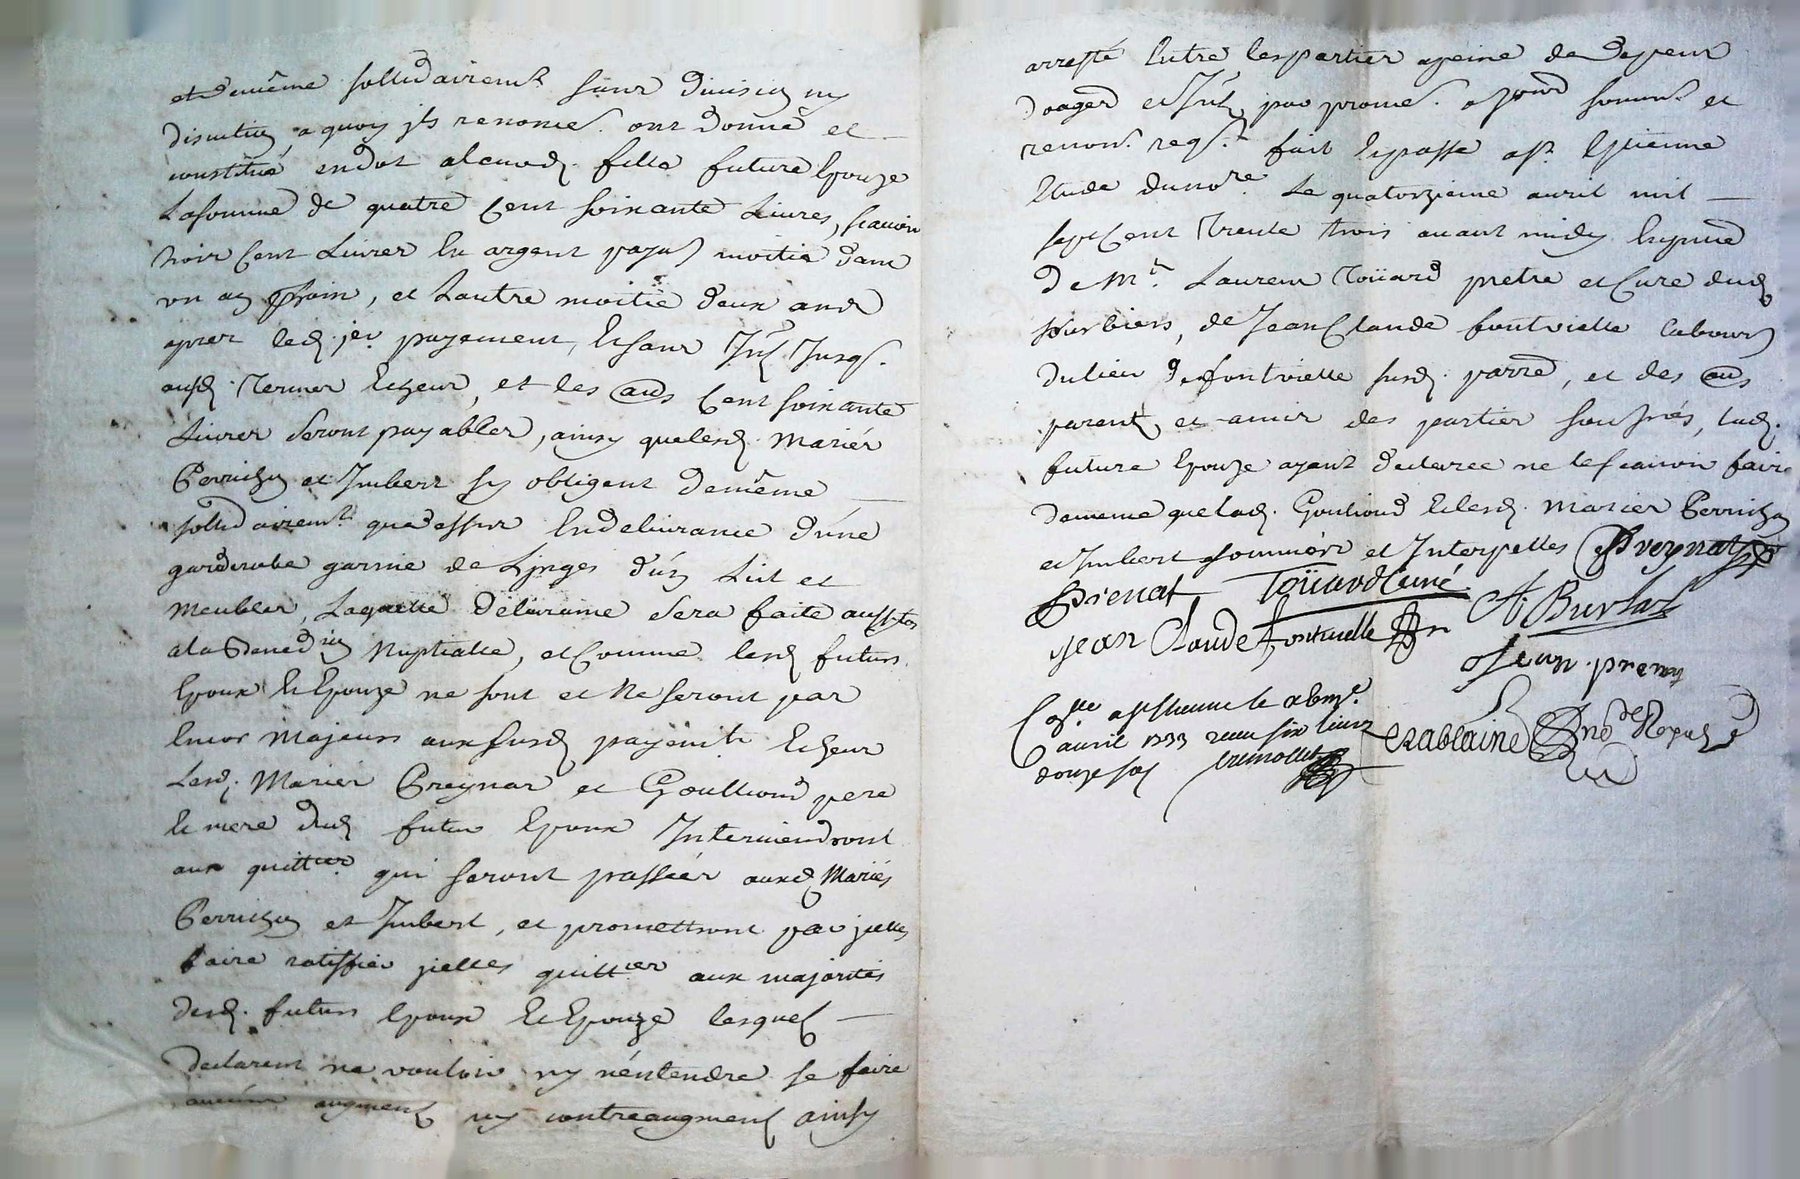 et de même sollidairemt sans division ny
discution, a quoy jls renoncet ont donné et
constitué en dot a lad. fille future Epouze
La somme de quatre Cent soixante Livres, scauoir
trois Cent Liures En argent payab moitié dans
vn an prochain, et Lautre moitié deux ans
aprez led. jer payement, Et sans Jnt Jusq.
ausd. Termes Echeus, et les aus Cent soixante
Liures seront payables, ainsy que lesd. Mariés
Perrichon et Jmbert sy obligent de même
sollidairemt que dessus En deliurance d'une
garderobe garnie de Linges d'un Lit et
Meubles, Laquelle déliurance sera faite aussitos
a la Bened on Nuptialle, et Comme lesd futurs
Epoux Et Epouze ne sont et Ne seront pas
Encor Majeurs aux susd payemts Echeus
Lesd. Mariés Preynat et Goultioud pere
Et mere dud futur Epoux Interuiendront
aux quittces qui seront passées auxd Mariés
Perrichon et Jmbert, et promettront par jcelles
faire ratiffier jcelles quittces aux majorités
desd. futurs Epoux Et Epouze lesquels
declarent ne vouloir ny n'entendre se faire
aucuns augment ny contreaugment ainsy
arresté Entre les parties a peine de depens
domages et Jnt, par promes. soumis et
renon. reqt. fait Et passé a St Etienne
Etude du nore. Le quatorzieme auril mil
sept Cent Trente trois auant midy En pnce
de Mre. Laurens Toüard pretre et Curé dud
Sorbiers, de Jean Claude fontvielle Labour
du lieu de fontvielle susd. parre, et des aus
parents et amis des parties soussnés, lad.
future Epouze ayant declaree ne le scauoir faire
de meme que lad. Goultioud Et lesd. Mariés Perrichon
et Jmbert sommés et Interpellés Preynat
Prenat Toüard Curé
Jean Claude fontuielle A Burlat
Jean prenat
Collé a St Etienne le
auril 1733 reçu six liures
douze sols tremollet Chablaine no Royal